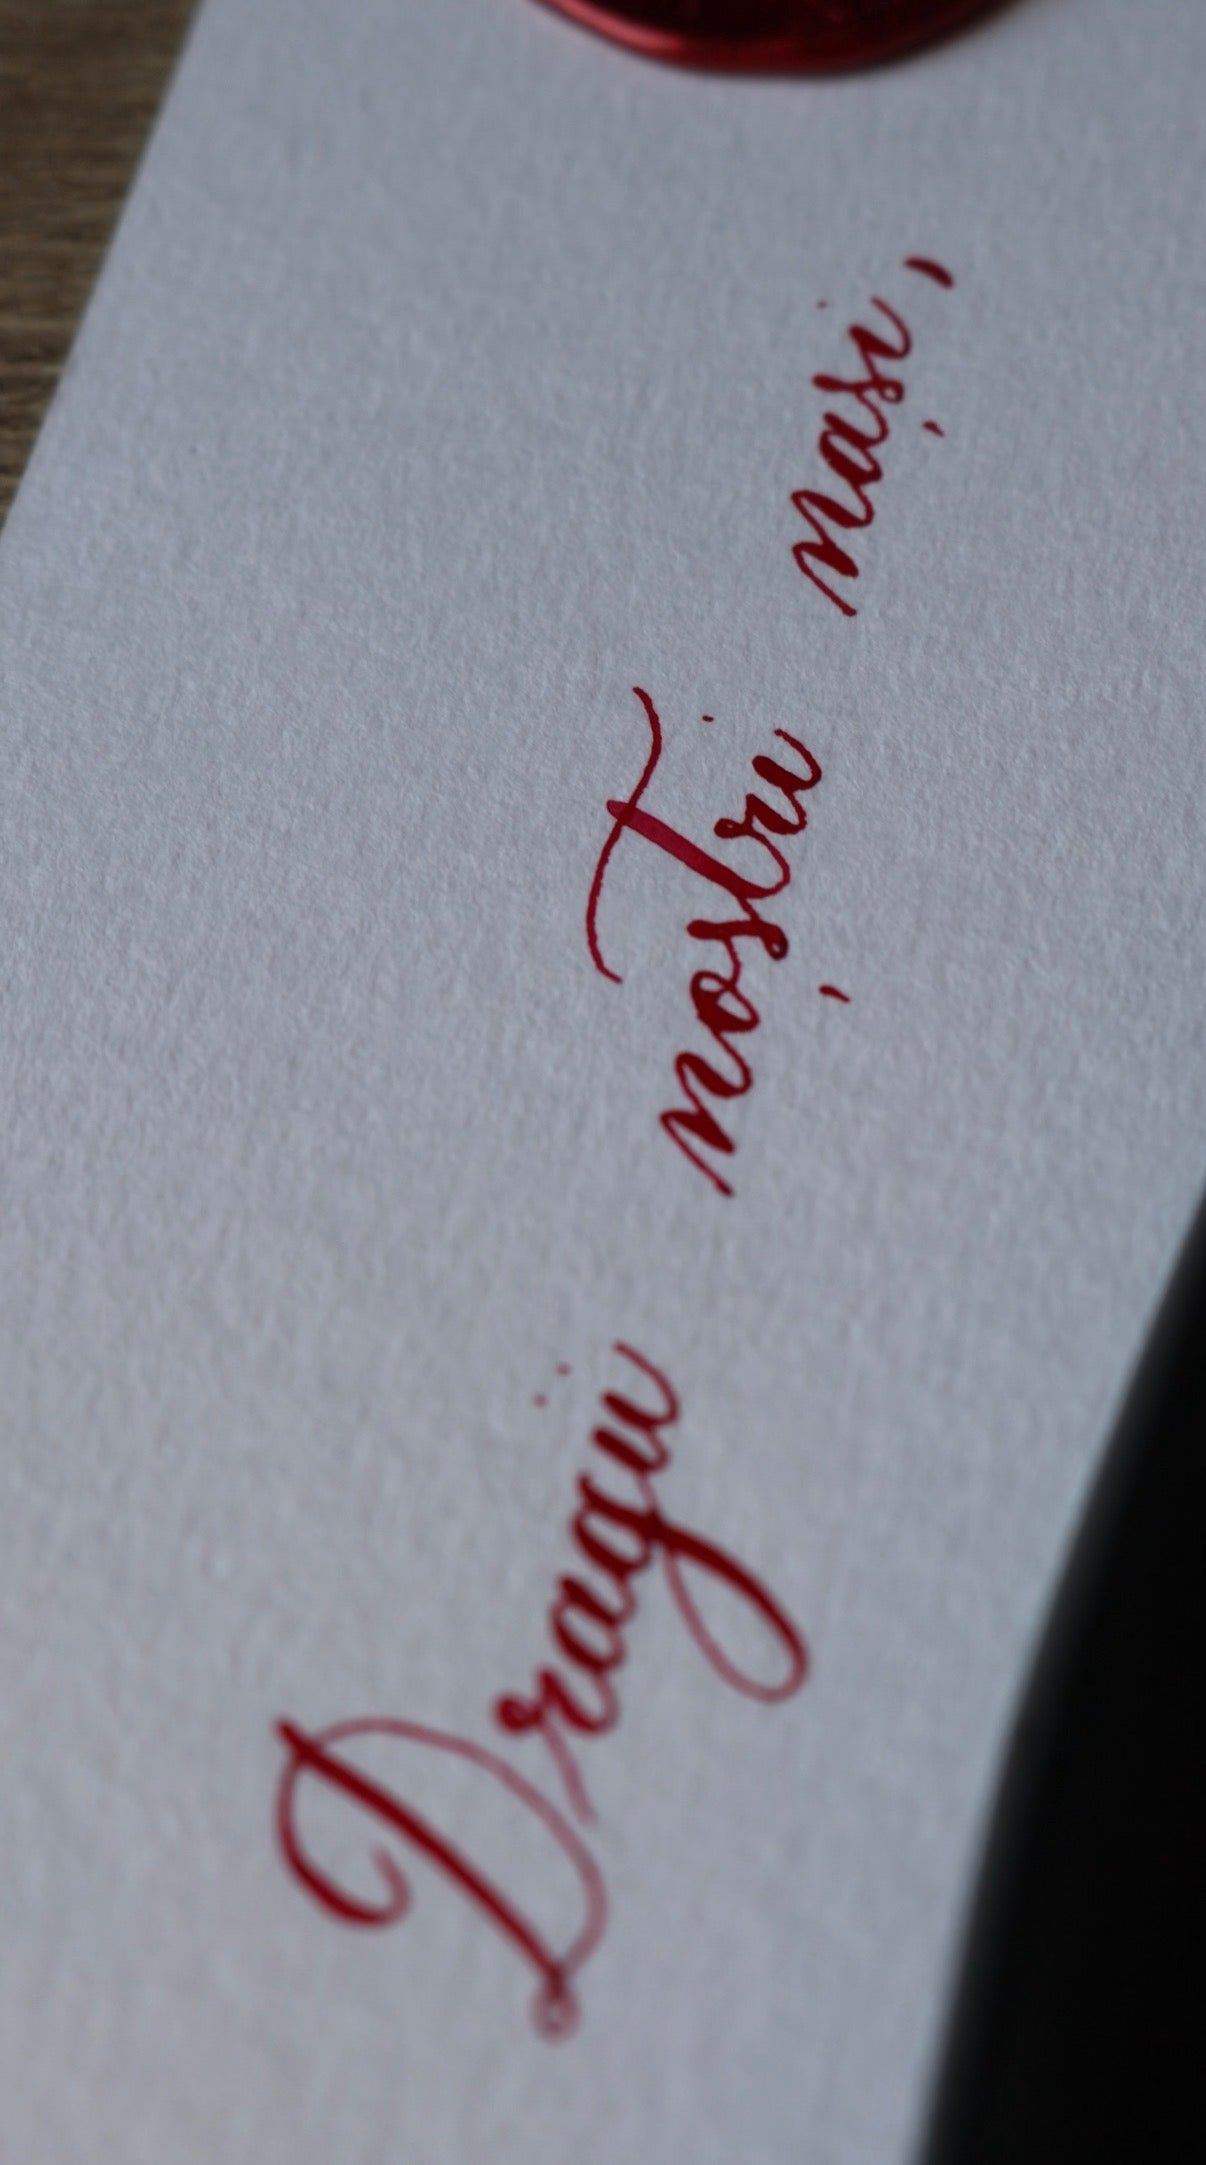 Dragii noștri nași,